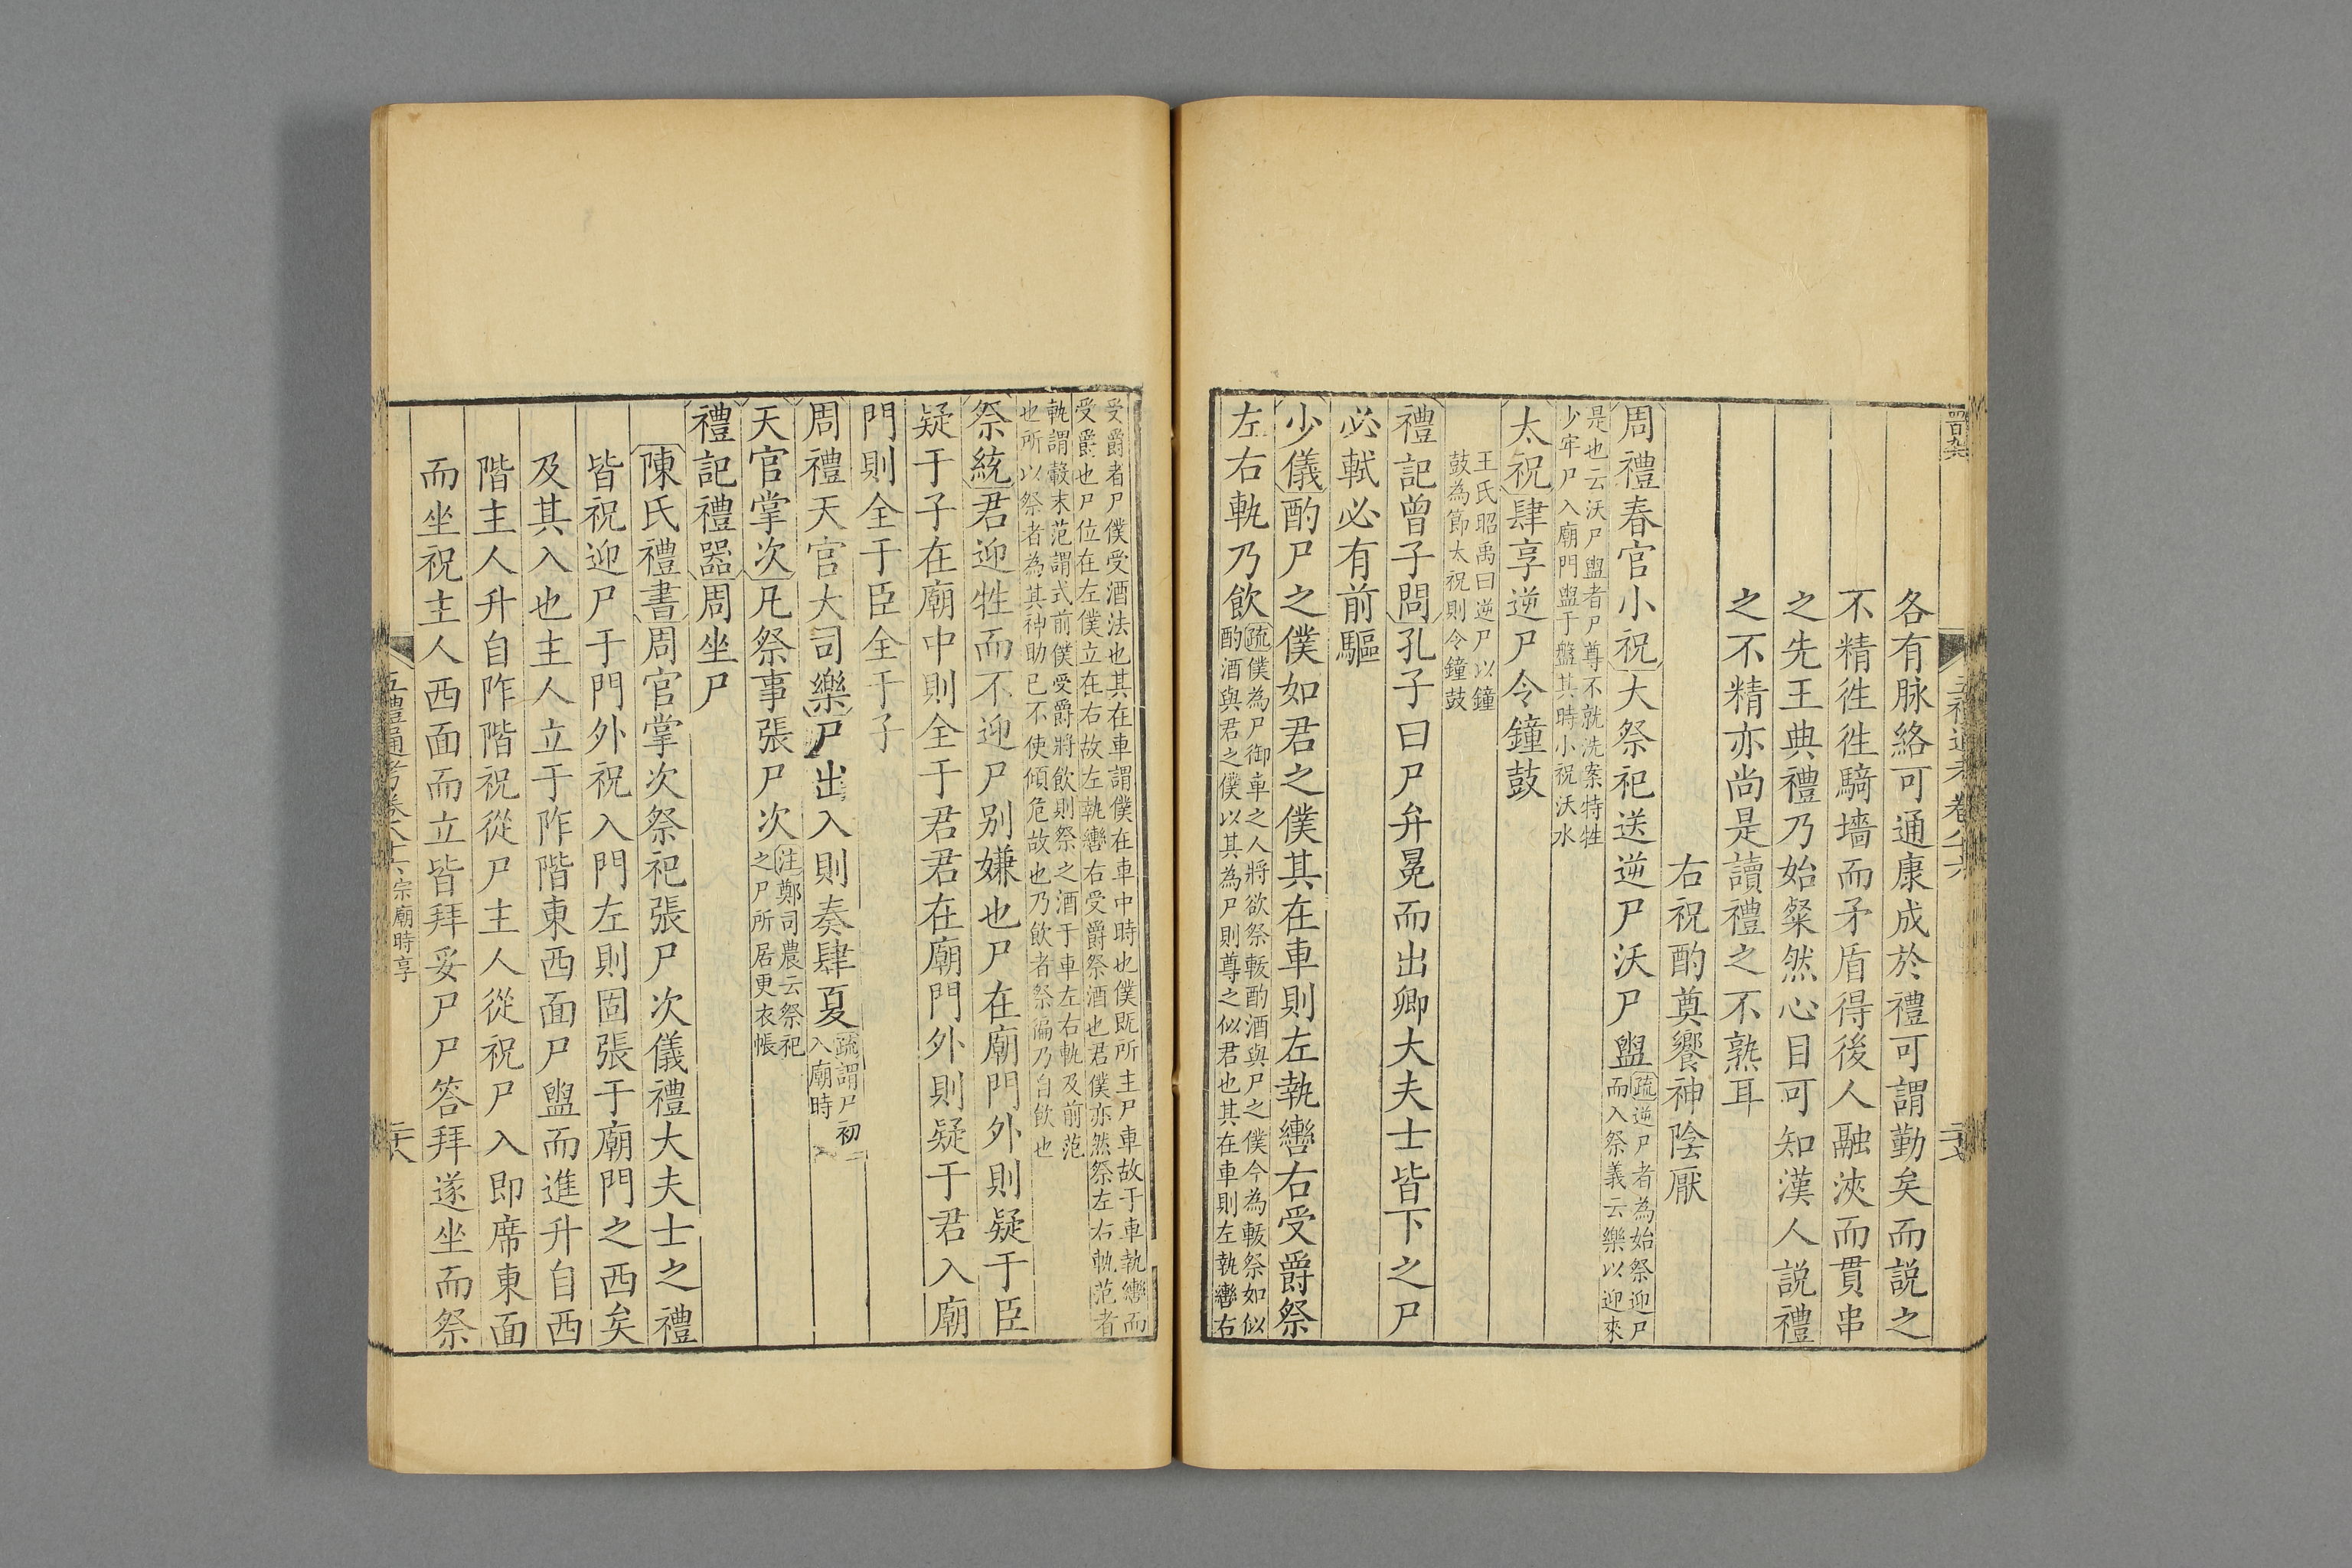 各有脉絡可通康成於禮可謂勤矣而説之
不精徃徃騎墻而矛盾得後人融浹而貫串
之先王典禮乃始粲然心目可知漢人説禮
之不精亦尚是讀禮之不熟耳
右祝酌奠饗神陰厭
周禮春官小祝大祭祀送逆尸沃尸盥疏逆尸者為始祭迎尸
而入祭義云樂以迎來
是也云沃尸盥者尸尊不就洗案特牲
少牢尸入廟門盥于盤其時小祝沃水
太祝肆享逆尸令鐘鼓
王氏昭禹曰逆尸以鐘
鼓為節太祝則令鐘鼓
禮記曾子問孔子曰尸弁冕而出卿大夫士皆下之尸
必軾必有前驅
少儀酌尸之僕如君之僕其在車則左執轡右受爵祭
左右軌乃飲疏僕為尸御車之人將欲祭軷酌酒與尸之僕今為軷祭如似
酌酒與君之僕以其為尸則尊之似君也其在車則左執轡右
受爵者尸僕受酒法也其在車謂僕在車中時也僕既所主尸車故于車執轡而
受爵也尸位在左僕立在右故左執轡右受爵祭酒也君僕亦然祭左右軌范者
軌謂轂末范謂式前僕受爵將飲則祭之酒于車左右軌及前范
也所以祭者為其神助己不使傾危故也乃飲者祭徧乃自飲也
祭統君迎牲而不迎尸别嫌也尸在廟門外則疑于臣
疑于子在廟中則全于君君在廟門外則疑于君入廟
門則全于臣全于子
周禮天官大司樂尸出入則奏肆夏疏謂尸初
入廟時
天官掌次凡祭事張尸次注鄭司農云祭祀
之尸所居更衣帳
禮記禮器周坐尸
陳氏禮書周官掌次祭祀張尸次儀禮大夫士之禮
皆祝迎尸于門外祝入門左則固張于廟門之西矣
及其入也主人立于阼階東西面尸盥而進升自西
階主人升自阼階祝從尸主人從祝尸入即席東面
而坐祝主人西面而立皆拜妥尸尸答拜遂坐而祭
五禮通考卷八十六 宗廟時享